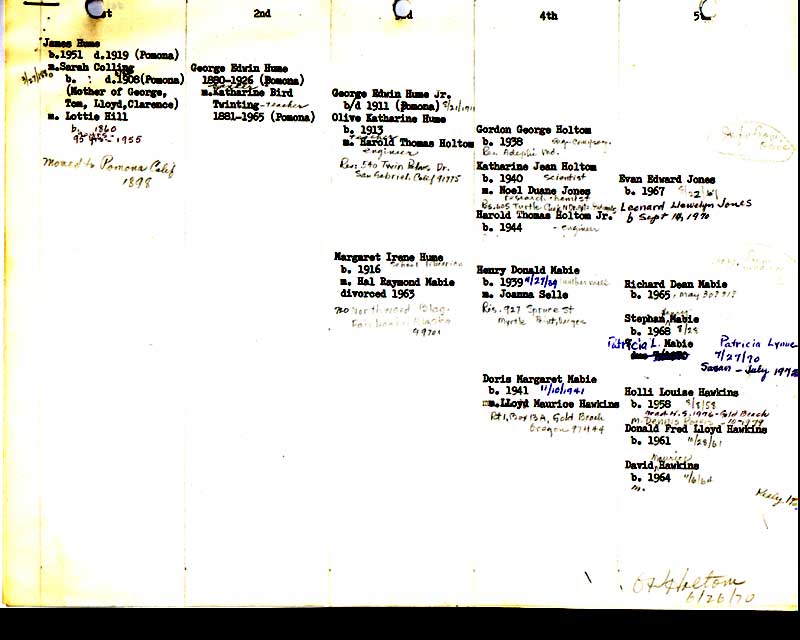 1st
2nd
3rd
4th
5th
James Hume
b.1951 d.1919 (Pomona)
m.Sarah Colling
b. : d.1908(Pomona)
(Mother of George,
Tom, Lloyd,Clarence)
m. Lottie Hill
b. 1860
95 yrs - 1955
moved to Pomona Calif
1898
George Edwin Hume
1880-1926 (Pomona)
m.Katharine Bird
Twinting - teacher
1881-1965 (Pomona)
George Edwin Hume Jr.
b/d 1911 (Pomona) 8/21/1911
Olive Katharine Hume
b. 1913
teacher
m. Harold Thomas Holtom
engineer
Res. 540 Twin Palms Dr.
San Gabriel, Calif 91775
Margaret Irene Hume
b. 1916 school librarian
m. Hal Raymond Mabie
divorced 1963
Northward Bldg.
Fairbanks Alaska
99701
Gordon George Holtom
b. 1938
Res. Adelphi Md.
Katharine Jean Holtom
b. 1940 scientist
m. Noel Duane Jones
research chemist
Res. 605 Turtle Creek N Dr.
Harold Thomas Holtom Jr.
b. 1944 - engineer
Henry Donald Mabie
b. 1939 11/27/39
m. Joanna Selle
Res. 927 Spruce St
Myrtle Point, Oregon
Doris Margaret Mabie
b. 1941 11/10/1941
m.Lloyd Maurice Hawkins
Rt 1, Box 13A, Gold Beach
Oregon 97444
Evan Edward Jones
b. 1967
Leonard Llewelyn Jones
b Sept 14, 1970
Richard Dean Mabie
b. 1965, may 30
Stephan Mabie
b. 1968 8/28
Patricia L. Mabie Patricia Lynne
7/27/70
Susan - July 197
Holli Louise Hawkins
b. 1958 8/8/58
grad H.S. 1976 - Gold Beach
m. Dennis - 10-1979
Donald Fred Lloyd Hawkins
b. 1961 11/28/61
Maurice
David, Hawkins
b. 1964 11/6/64
m.
Kelly
O H Holtom
6/26/70